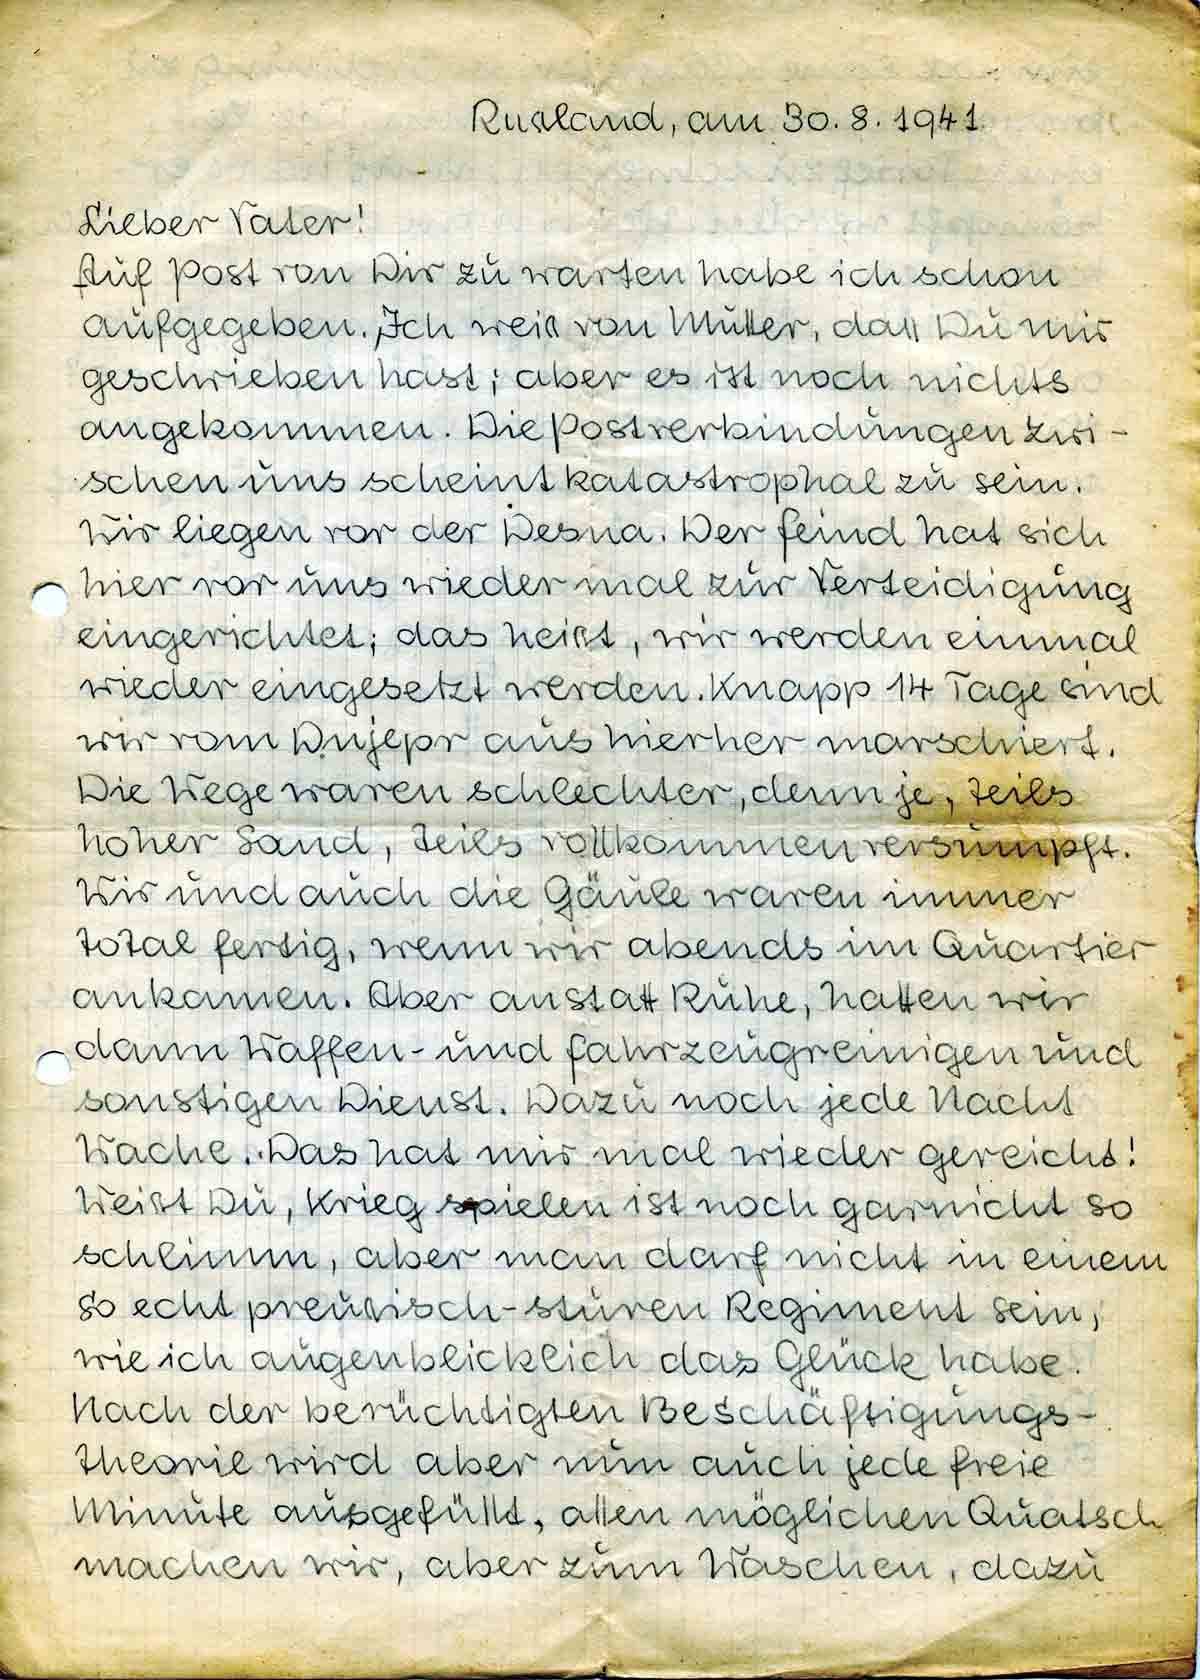 Rußland, am 30.8.1941.
Lieber Vater!
Auf Post von Dir zu warten habe ich schon
aufgegeben. Ich weiß von Mutter, daß Du mir
geschrieben hast; aber es ist noch nichts
angekommen. Die Postverbindungen zwi-
schen uns scheint katastrophal zu sein.
Wir liegen vor der Desna. Der Feind hat sich
hier vor uns wieder mal zur Verteidigung
eingerichtet; das heißt, wir werden einmal
wieder eingesetzt werden. Knapp 14 Tage sind
wir vom Dnjepr aus hierher marschiert.
Die Wege waren schlechter, denn je, teils
hoher Sand, teils vollkommen versumpft.
Wir und auch die Gäule waren immer
total fertig, wenn wir abends im Quartier
ankamen. Aber anstatt Ruhe, hatten wir
dann Waffen- und Fahrzeugreinigen und
sonstigen Dienst. Dazu noch jede Nacht
Wache. Das hat mir mal wieder gereicht!
Weißt Du, Krieg spielen ist noch garnicht so
schlimm, aber man darf nicht in einem
so echt preußisch-sturen Regiment sein,
wie ich augenblicklich das Glück habe.
Nach der berüchtigten Beschäftigungs-
theorie wird aber nun auch jede freie
Minute ausgefüllt, allen möglichen Quatsch
machen wir, aber zum Waschen, dazu